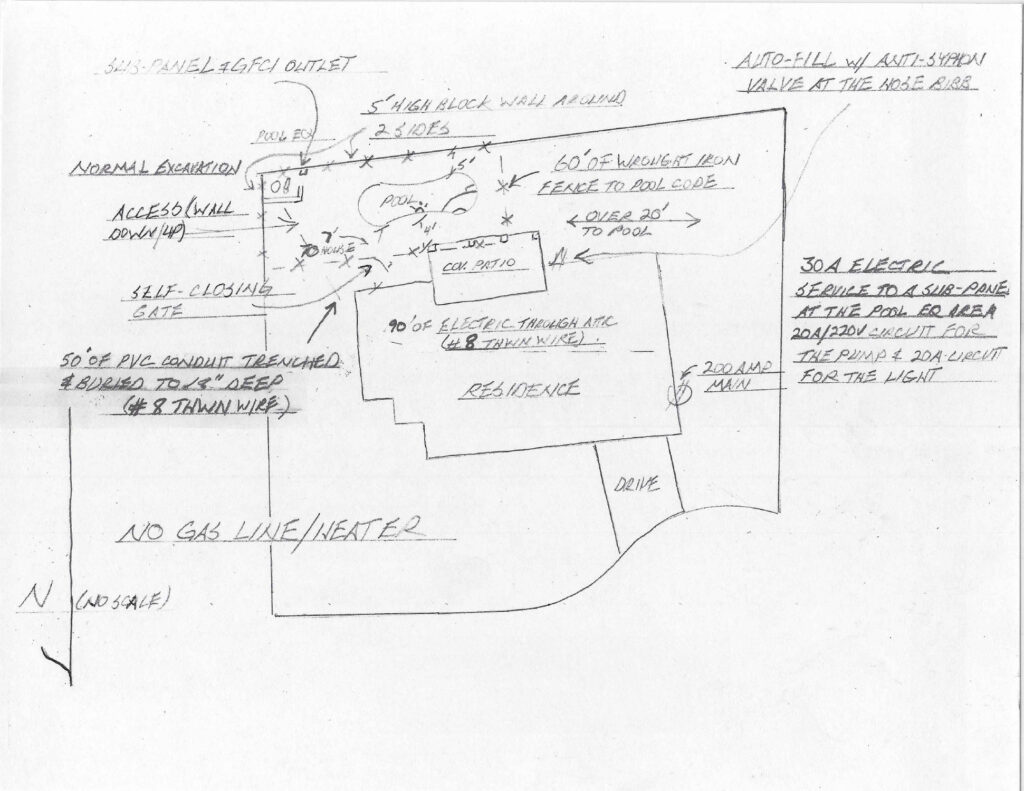 SUB-PANEL & GFCI OUTLET
AUTO-FILL W/ ANTI-SYPHON
VALVE AT THE HOSE BIBB
5' HIGH BLOCK WALL AROUND
2 SIDES
POOL EQ
NORMAL EXCAVATION
ACCESS (WALL
DOWN/UP)
5'
60' OF WROUGHT IRON
FENCE TO POOL CODE
POOL
OVER 20'
TO POOL
4'
7'
TO HOUSE
COV. PATIO
SELF-CLOSING
GATE
30A ELECTRIC
SERVICE TO A SUB-PANEL
AT THE POOL EQ AREA
20A/220V CIRCUIT FOR
THE PUMP & 20A CIRCUIT
FOR THE LIGHT
90' OF ELECTRIC THROUGH ATTIC
(#8 THWN WIRE).
50' OF PVC CONDUIT TRENCHED
& BURIED TO 18" DEEP
(#8 THWN WIRE)
200 AMP
MAIN
RESIDENCE
DRIVE
NO GAS LINE/HEATER
N (NO SCALE)